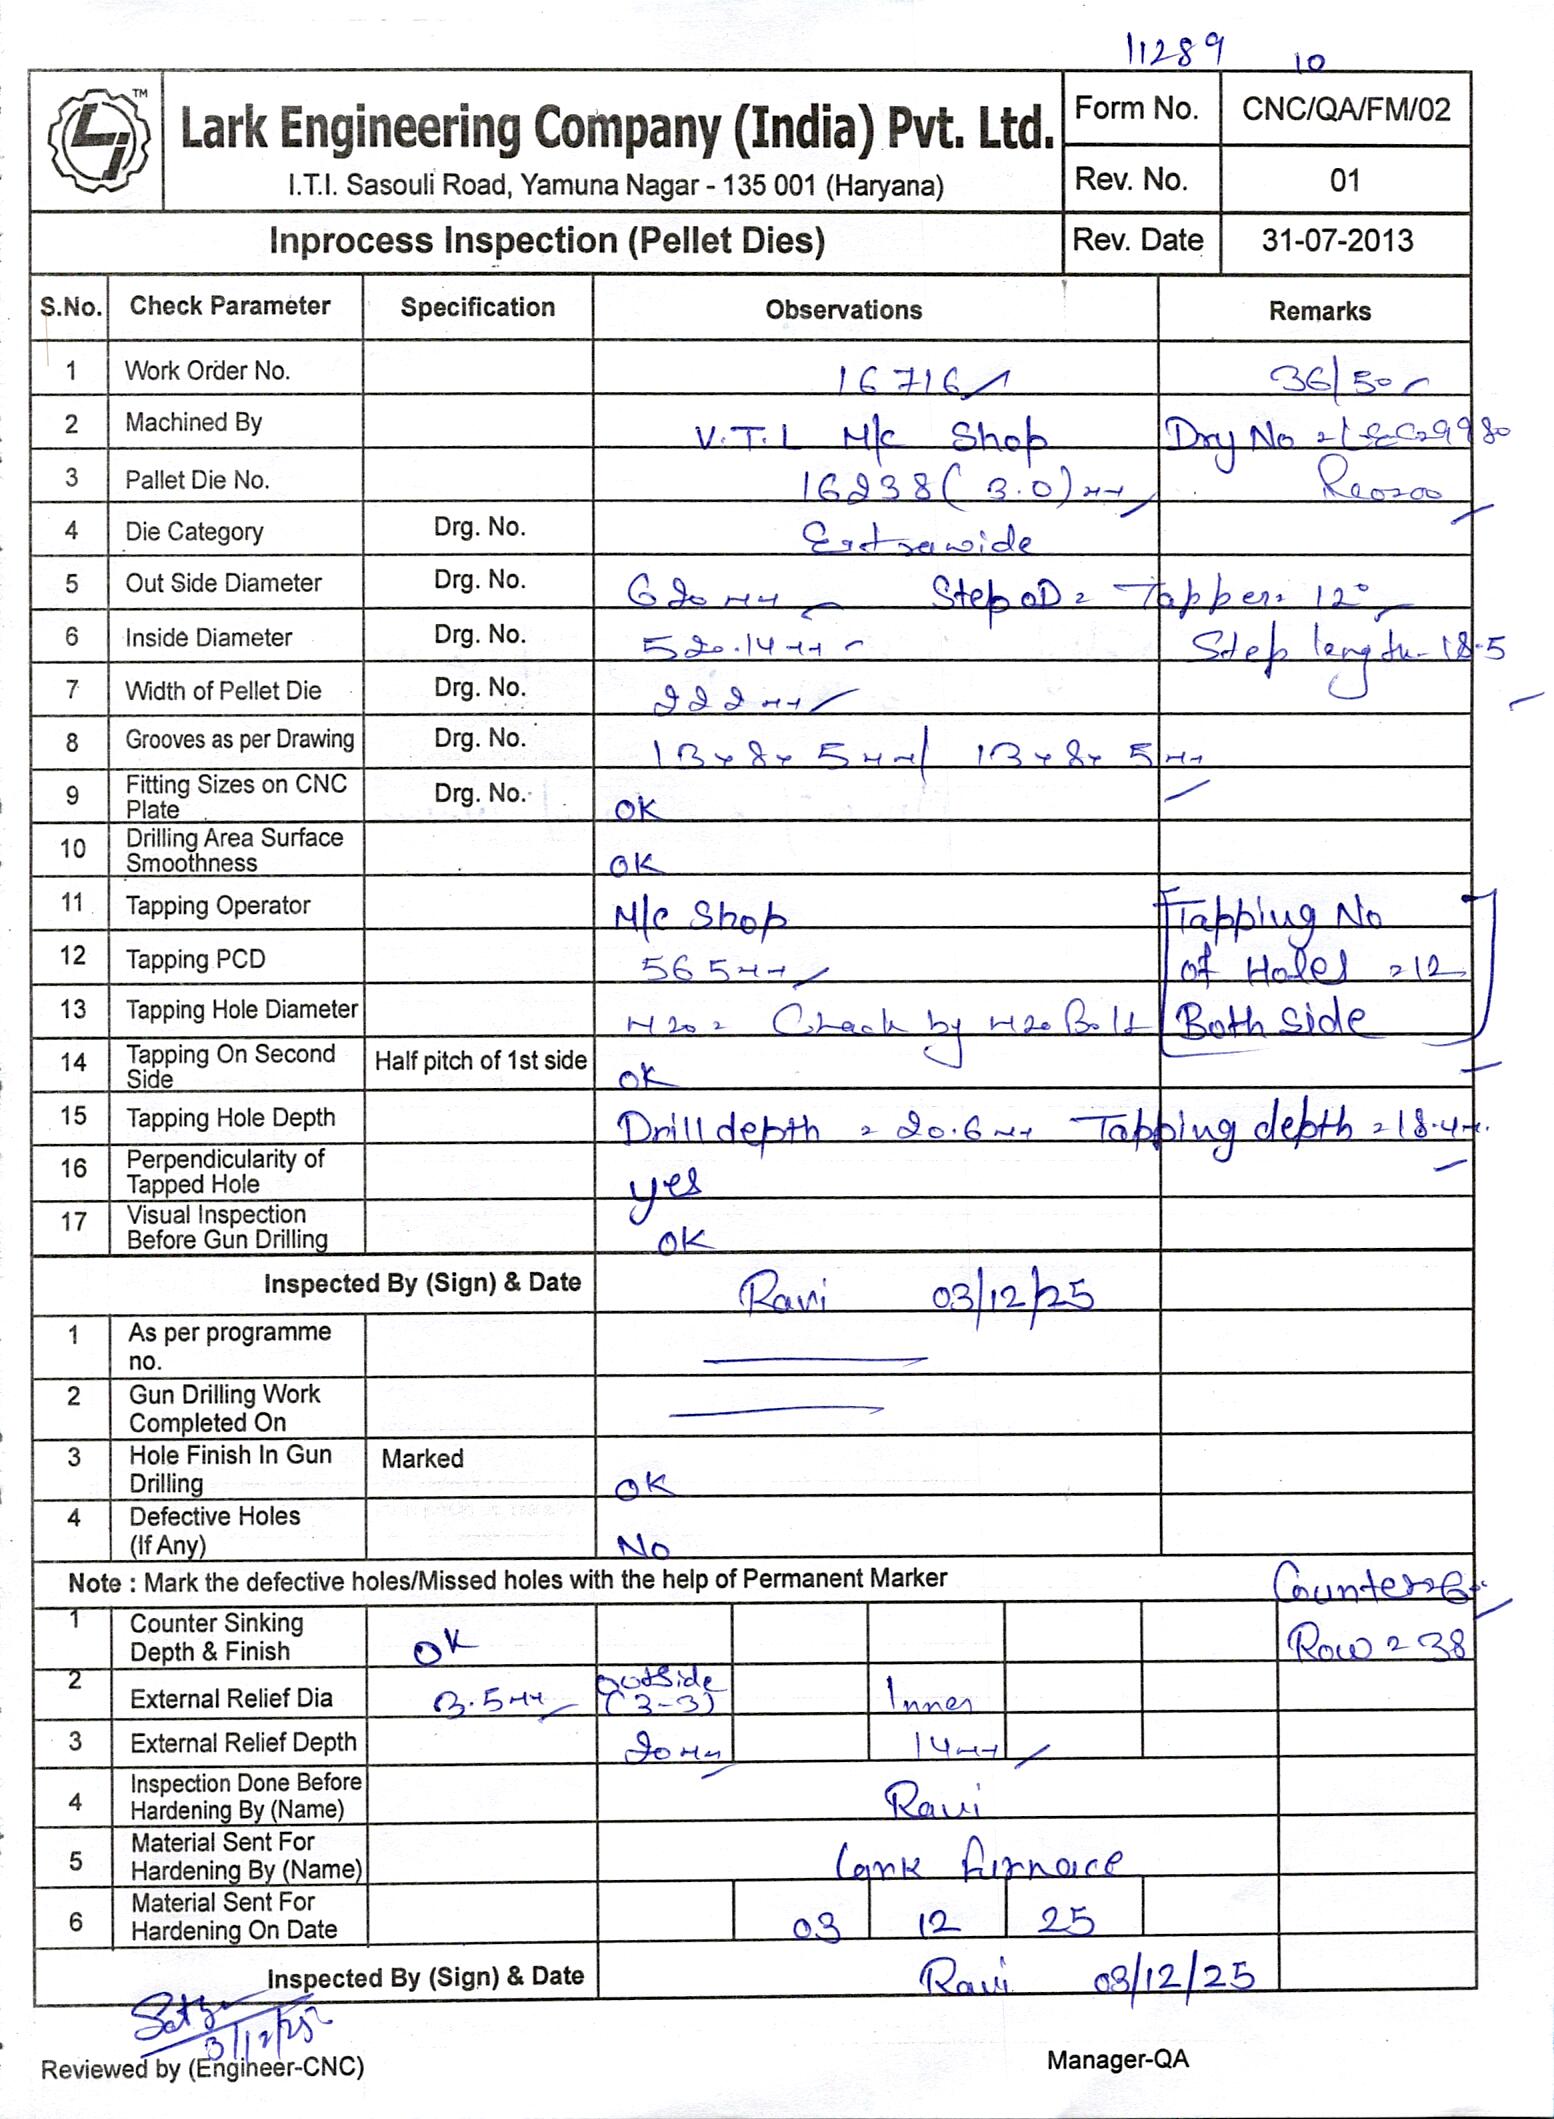 11289 10
TM
Lark Engineering Company (India) Pvt. Ltd.
I.T.I. Sasouli Road, Yamuna Nagar - 135 001 (Haryana)
Form No. CNC/QA/FM/02
Rev. No. 01
Inprocess Inspection (Pellet Dies) Rev. Date 31-07-2013
S.No. Check Parameter Specification Observations Remarks
1 Work Order No. 16716 36/50
2 Machined By V.T.L M/c Shop Drg No
3 Pallet Die No. 16238 (3.0)
4 Die Category Drg. No. Extrawide
5 Out Side Diameter Drg. No. 620 mm Step OD = Tapper = 12°
6 Inside Diameter Drg. No. 520.14 mm Step length - 18.5
7 Width of Pellet Die Drg. No. 222 mm
8 Grooves as per Drawing Drg. No. 13 x 8 x 5 mm / 13 x 8 x 5 mm
9 Fitting Sizes on CNC Plate Drg. No. OK
10 Drilling Area Surface Smoothness OK
11 Tapping Operator M/c Shop Tapping No
12 Tapping PCD 565 mm of Holes = 12
13 Tapping Hole Diameter M20 = Check by M20 Bolt Both Side
14 Tapping On Second Side Half pitch of 1st side OK
15 Tapping Hole Depth Drill depth = 20.6 mm Tapping depth = 18.4
16 Perpendicularity of Tapped Hole yes
17 Visual Inspection Before Gun Drilling OK
Inspected By (Sign) & Date Ravi 03/12/25
1 As per programme no.
2 Gun Drilling Work Completed On
3 Hole Finish In Gun Drilling Marked OK
4 Defective Holes (If Any) No
Note : Mark the defective holes/Missed holes with the help of Permanent Marker
1 Counter Sinking Depth & Finish OK Row = 38
2 External Relief Dia 3.5 mm outside (3-3) Inner
3 External Relief Depth 20 mm 14 mm
4 Inspection Done Before Hardening By (Name) Ravi
5 Material Sent For Hardening By (Name) Lark furnace
6 Material Sent For Hardening On Date 03 12 25
Inspected By (Sign) & Date Ravi 03/12/25
3/12/25
Reviewed by (Engineer-CNC) Manager-QA